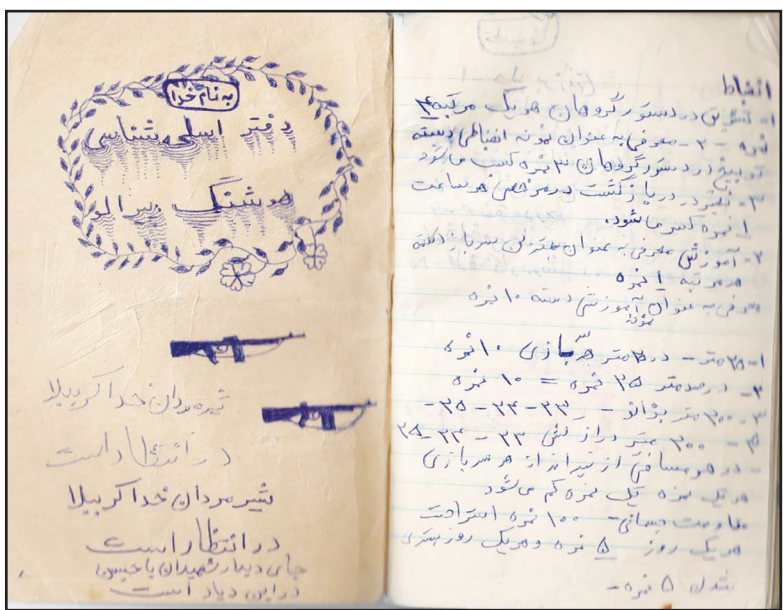 به نام خدا
دفتر اسلحه شناسی
هوشنگ
شیرمردان خدا کربلا
در انتظار است
شیرمردان خدا کربلا
در انتظار است
جای دیدار شهیدان با حسین
در این دیار است
انضباط
۱- تشویق در دستور گروهان هر یک مرتبه ۴
نمره - ۲- معرفی به عنوان نمونه انضباطی دسته
در دستور گروهان ۳ نمره کسب می‌شود
۳- در بازگشت در مرخصی هر ساعت
۱ نمره کسر می‌شود.
۴- آموزش معرفی به عنوان بهترین سرباز دسته
هر مرتبه ۱ نمره
معرفی به عنوان آموزشی دسته ۱۰ نمره
نمونه
۱- ۲۵ متر - در ۲۵ متر هر سربازی ۱۰ نمره
۲- در صد متر ۲۵ نمره = ۱۰ نمره
۳- ۳۰۰ متر بزانو - ۲۳-۲۴-۲۵-
۴- ۳۰۰ متر درازکش ۲۳-۲۴-۲۵
- در هر مسافتی از تیرانداز هر سربازی
هر یک نمره یک نمره کم می‌شود
مقاومت جسمانی - ۱۰۰ نمره استراحت
هر یک روز ۵ نمره و هر یک روز بستری
شدن ۵ نمره -